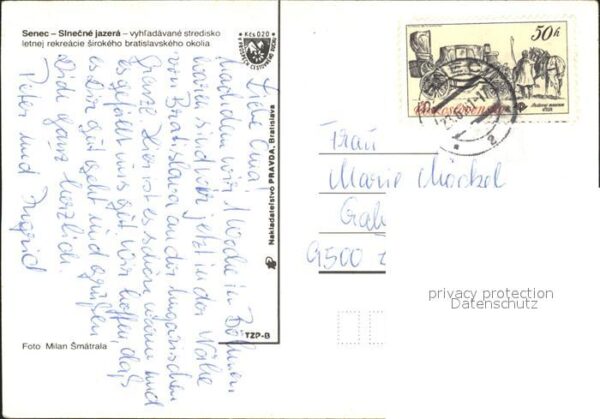 Senec – Slnečné jazerá – vyhľadávané stredisko
letnej rekreácie širokého bratislavského okolia
Kčs 0,20
50h
SENEC
Československo
Liebe Oma!
Nachdem wir 1 Woche in Böhmen
waren sind wir jetzt in der Nähe
von Bratislava an der ungarischen
Grenze. Hier ist es schön warm und
es gefällt uns gut. Wir hoffen, daß
es Dir gut geht und grüßen
Dich ganz herzlich.
Peter und Ingrid
Nakladateľstvo PRAVDA, Bratislava
TZP-B
Foto Milan Šmátrala
Frau
Marie Mockel
Gab
9500
privacy protection
Datenschutz